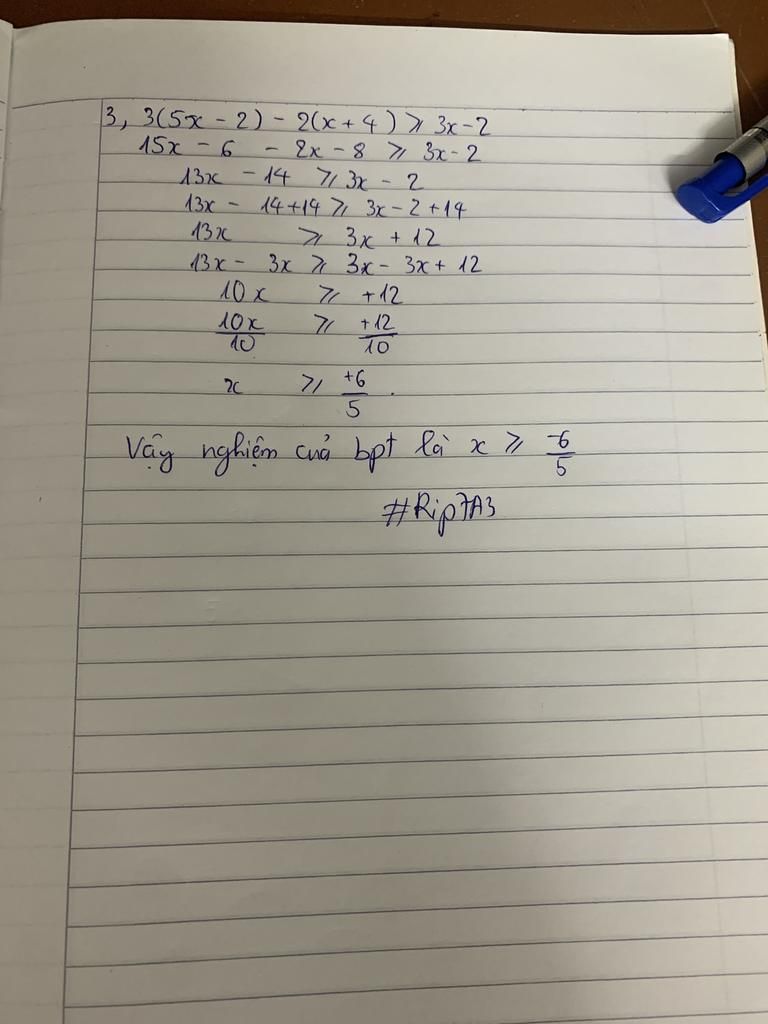 3, 3(5x - 2) - 2(x + 4) ⩾ 3x - 2
15x - 6 - 2x - 8 ⩾ 3x - 2
13x - 14 ⩾ 3x - 2
13x - 14 + 14 ⩾ 3x - 2 + 14
13x ⩾ 3x + 12
13x - 3x ⩾ 3x - 3x + 12
10x ⩾ +12
10x/10 ⩾ +12/10
x ⩾ +6/5.
Vậy nghiệm của bpt là x ⩾ -6/5
#Rip7A3